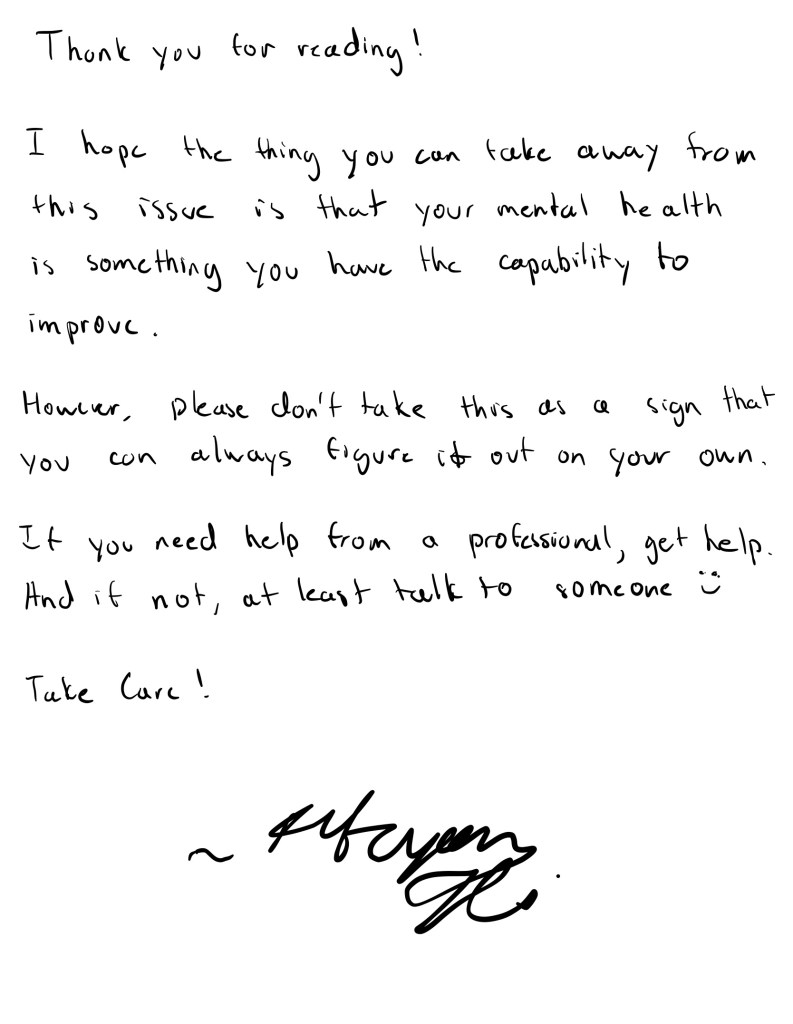 Thank you for reading!
I hope the thing you can take away from
this issue is that your mental health
is something you have the capability to
improve.
However, please don't take this as a sign that
you can always figure it out on your own.
If you need help from a professional, get help.
And if not, at least talk to someone
Take Care!
~